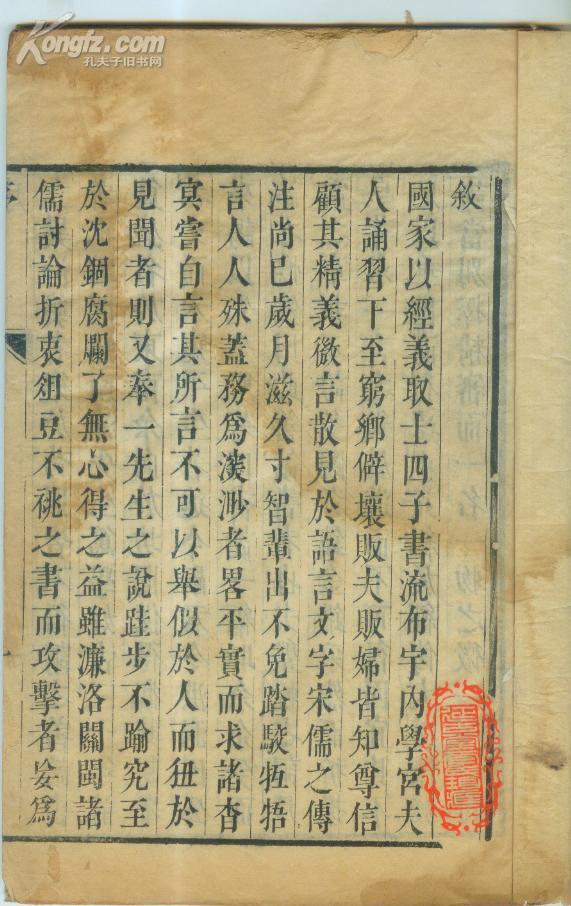 Kongfz.com
孔夫子旧书网
敘
國家以經義取士四子書流布宇內學宮夫
人誦習下至窮鄉僻壤販夫販婦皆知尊信
顧其精義微言散見於語言文字宋儒之傳
注尚已歲月滋久寸智輩出不免踏駮牾牾
言人人殊蓋務爲淡渺者畧平實而求諸杳
㝠嘗自言其所言不可以舉似於人而狃於
見聞者則又奉一先生之說跬步不踰究至
於沈錮腐爛了無心得之益雖濂洛關閩諸
儒討論折衷俎豆不祧之書而攻擊者妄爲